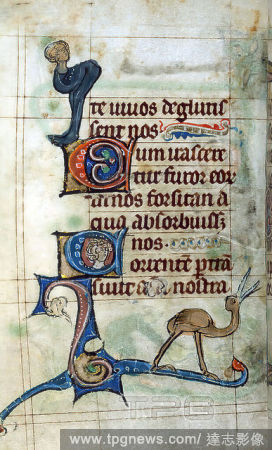 te uiuos deglutis
sent nos
Cum irascere
tur furor eor
in nos forsitan a
qua absorbuiss;
nos.
Torrentē ptrā
siuit aīa nostra
TPG
www.tpgnews.com / 達志影像